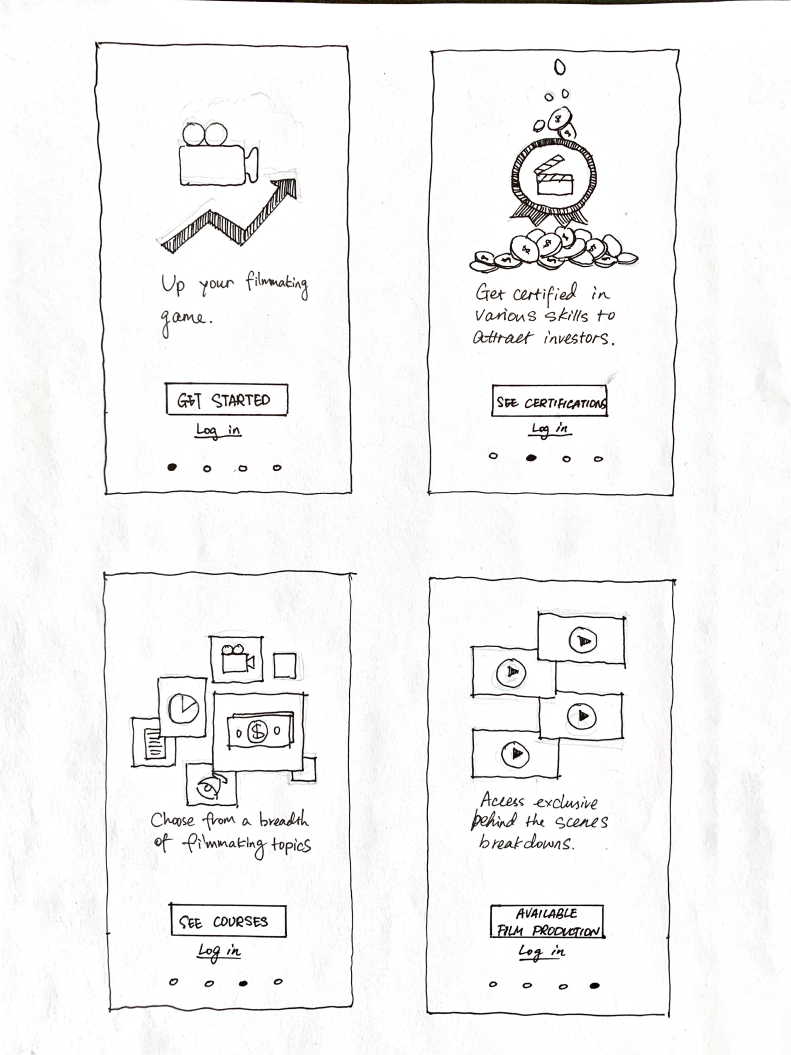 Up your filmmaking
game.
GET STARTED
Log in
$
$
$
$
$
Get certified in
various skills to
attract investors.
SEE CERTIFICATIONS
Log in
$
Choose from a breadth
of filmmaking topics
SEE COURSES
Log in
Access exclusive
behind the scenes
breakdowns.
AVAILABLE
FILM PRODUCTION
Log in